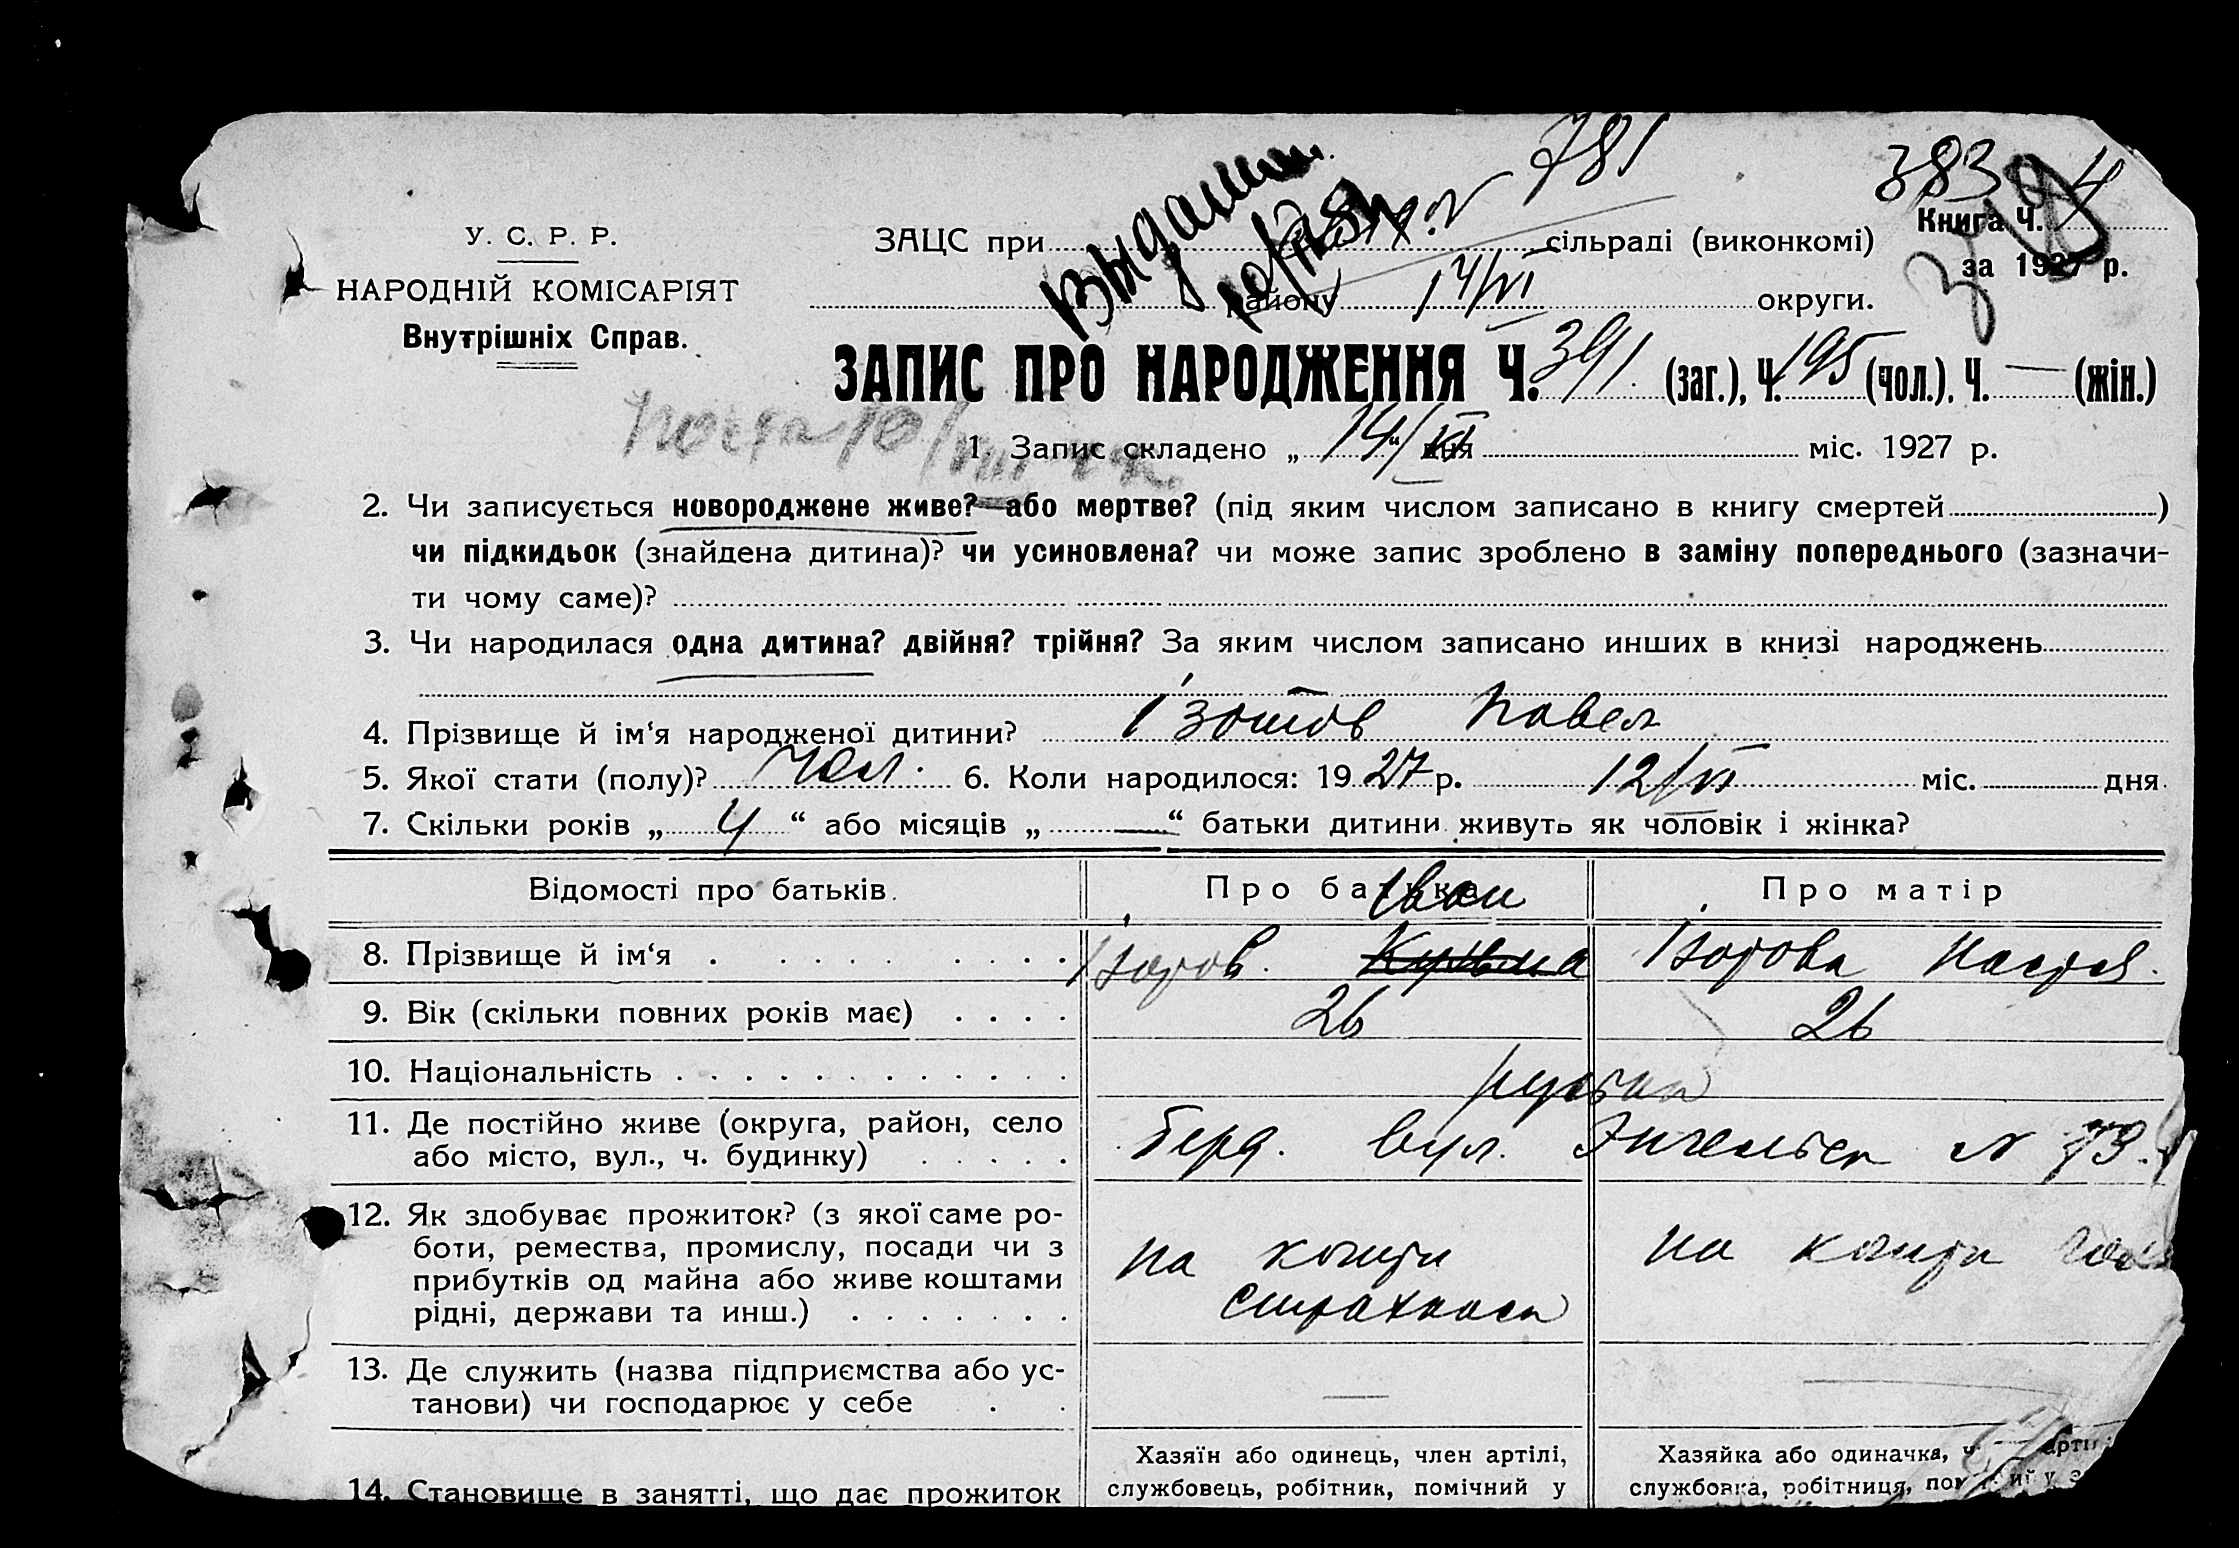 781
383
У. С. Р. Р.
НАРОДНІЙ КОМІСАРІЯТ
Внутрішніх Справ.
ЗАЦС при сільраді (виконкомі)
району 14/VI округи.
Книга Ч.
за 1927 р.
ЗАПИС ПРО НАРОДЖЕННЯ Ч. 391 (заг.), Ч. 195 (чол.), Ч. — (жін.)
1. Запис складено „ 14/VI “ дня міс. 1927 р.
2. Чи записується новороджене живе? або мертве? (під яким числом записано в книгу смертей )
чи підкидьок (знайдена дитина)? чи усиновлена? чи може запис зроблено в заміну попереднього (зазначи-
ти чому саме)?
3. Чи народилася одна дитина? двійня? трійня? За яким числом записано инших в книзі народжень
4. Прізвище й ім‘я народженої дитини? Ізотов Павел
5. Якої стати (полу)? Чол. 6. Коли народилося: 1927 р. 12/VI міс. дня
7. Скільки років „ 4 “ або місяців „ — “ батьки дитини живуть як чоловік і жінка?
Відомості про батьків. Про батька Про матір
Іван
8. Прізвище й ім‘я Ізотов. Кузьма Ізотова Настя.
9. Вік (скільки повних років має) 26 26
10. Національність
11. Де постійно живе (округа, район, село
або місто, вул., ч. будинку) Берд. вул. Энгельса N 73.
12. Як здобуває прожиток? (з якої саме ро-
боти, ремества, промислу, посади чи з
прибутків од майна або живе коштами
рідні, держави та инш.)
на кошти
страхкаси
на кошти
13. Де служить (назва підприємства або ус-
танови) чи господарює у себе — —
14. Становище в занятті, що дає прожиток
Хазяїн або одинець, член артілі,
службовець, робітник, помічний у
Хазяйка або одиначка,
службовка, робітниця,